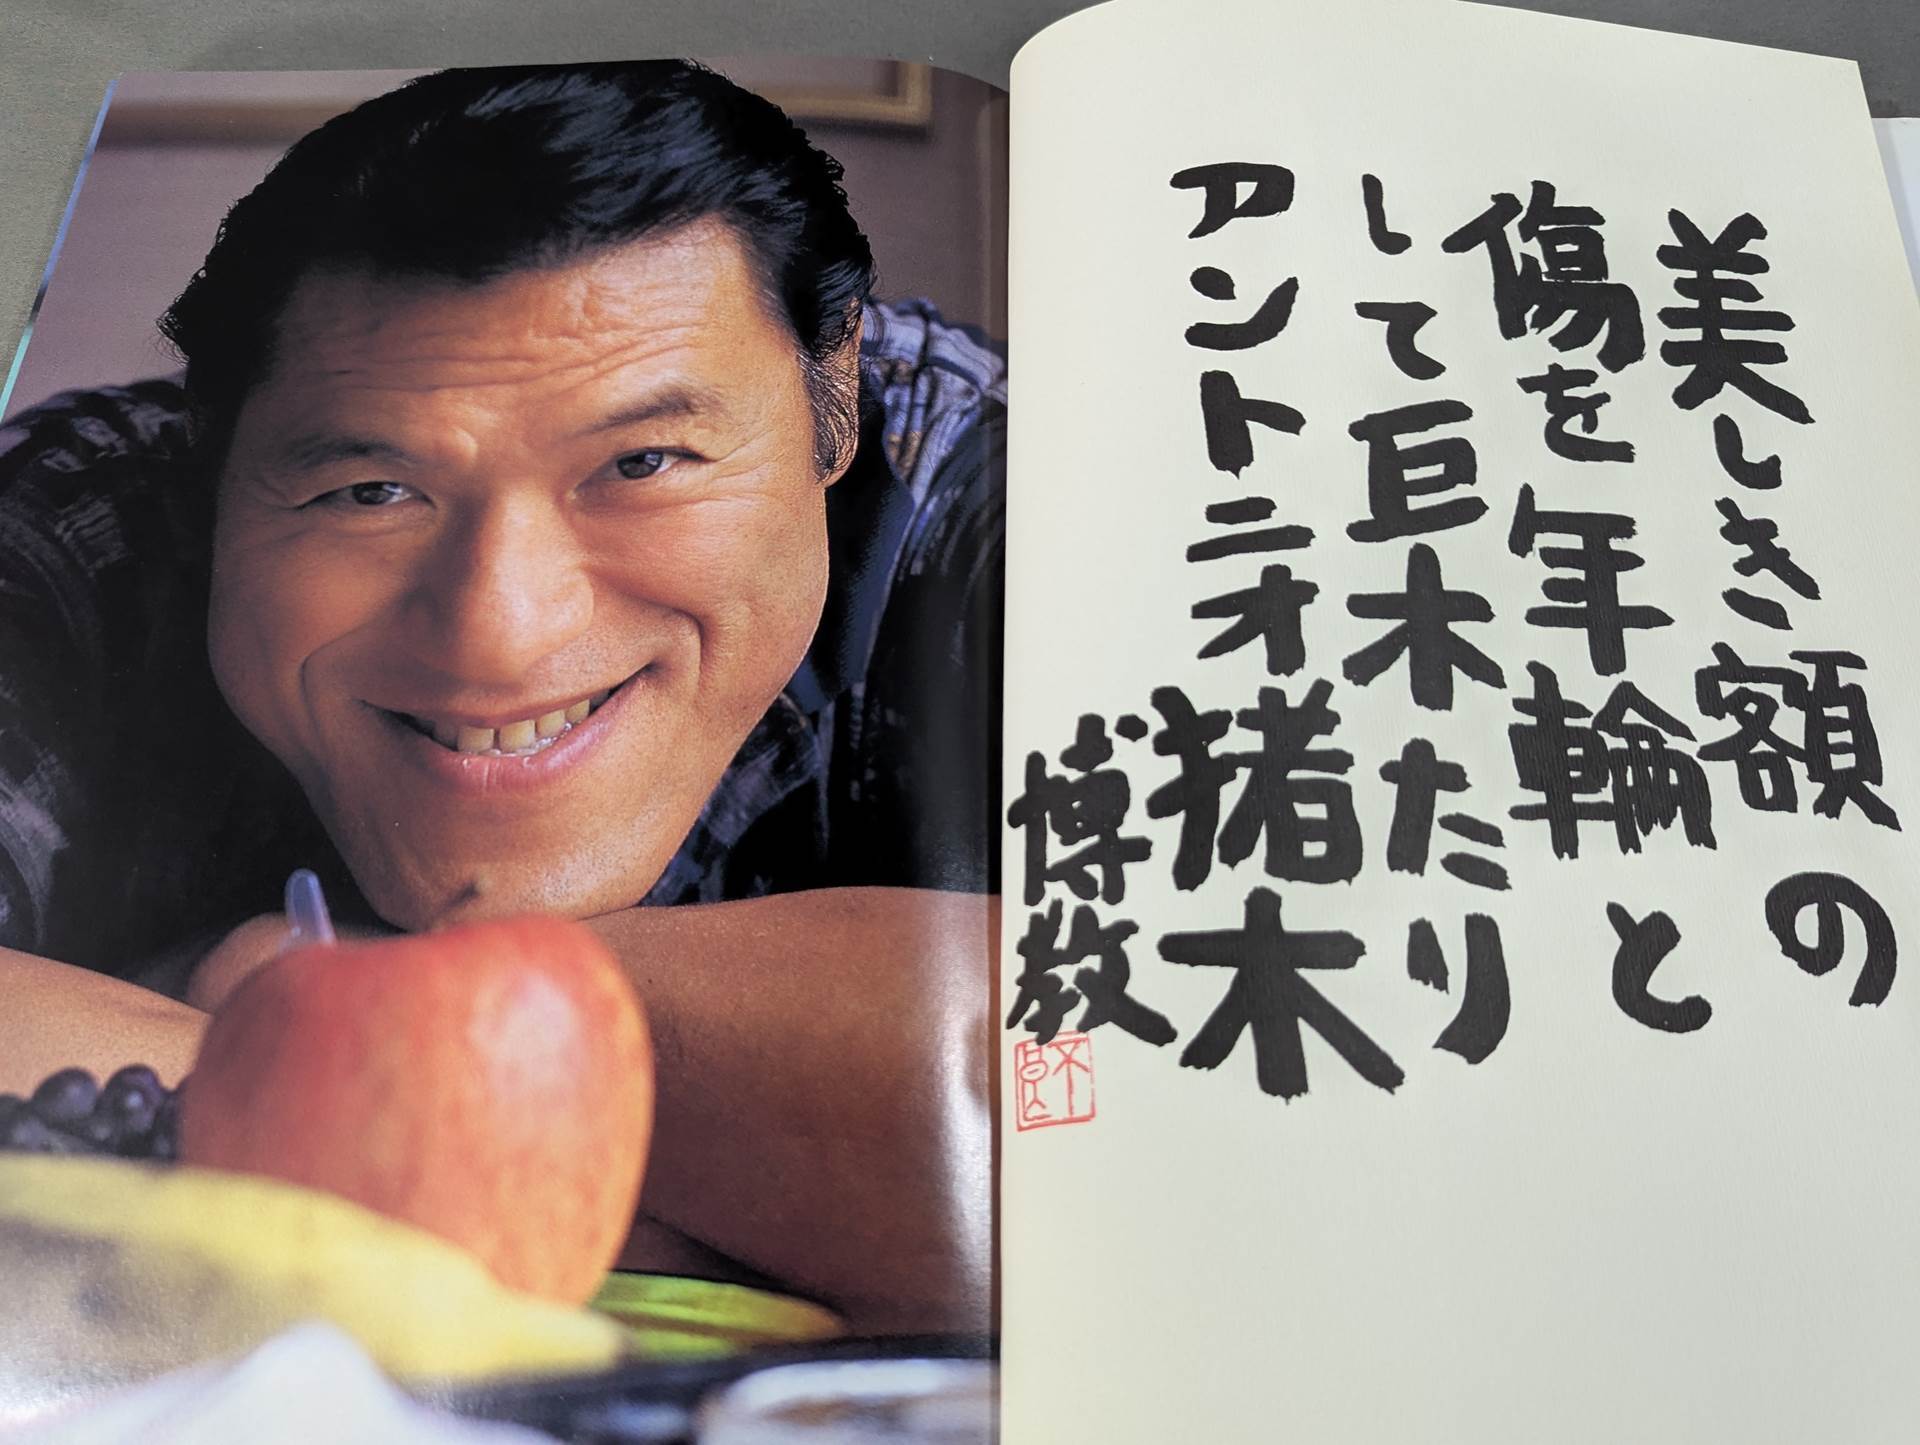 美しき額の
傷を年輪と
して巨木たり
アントニオ猪木
博教